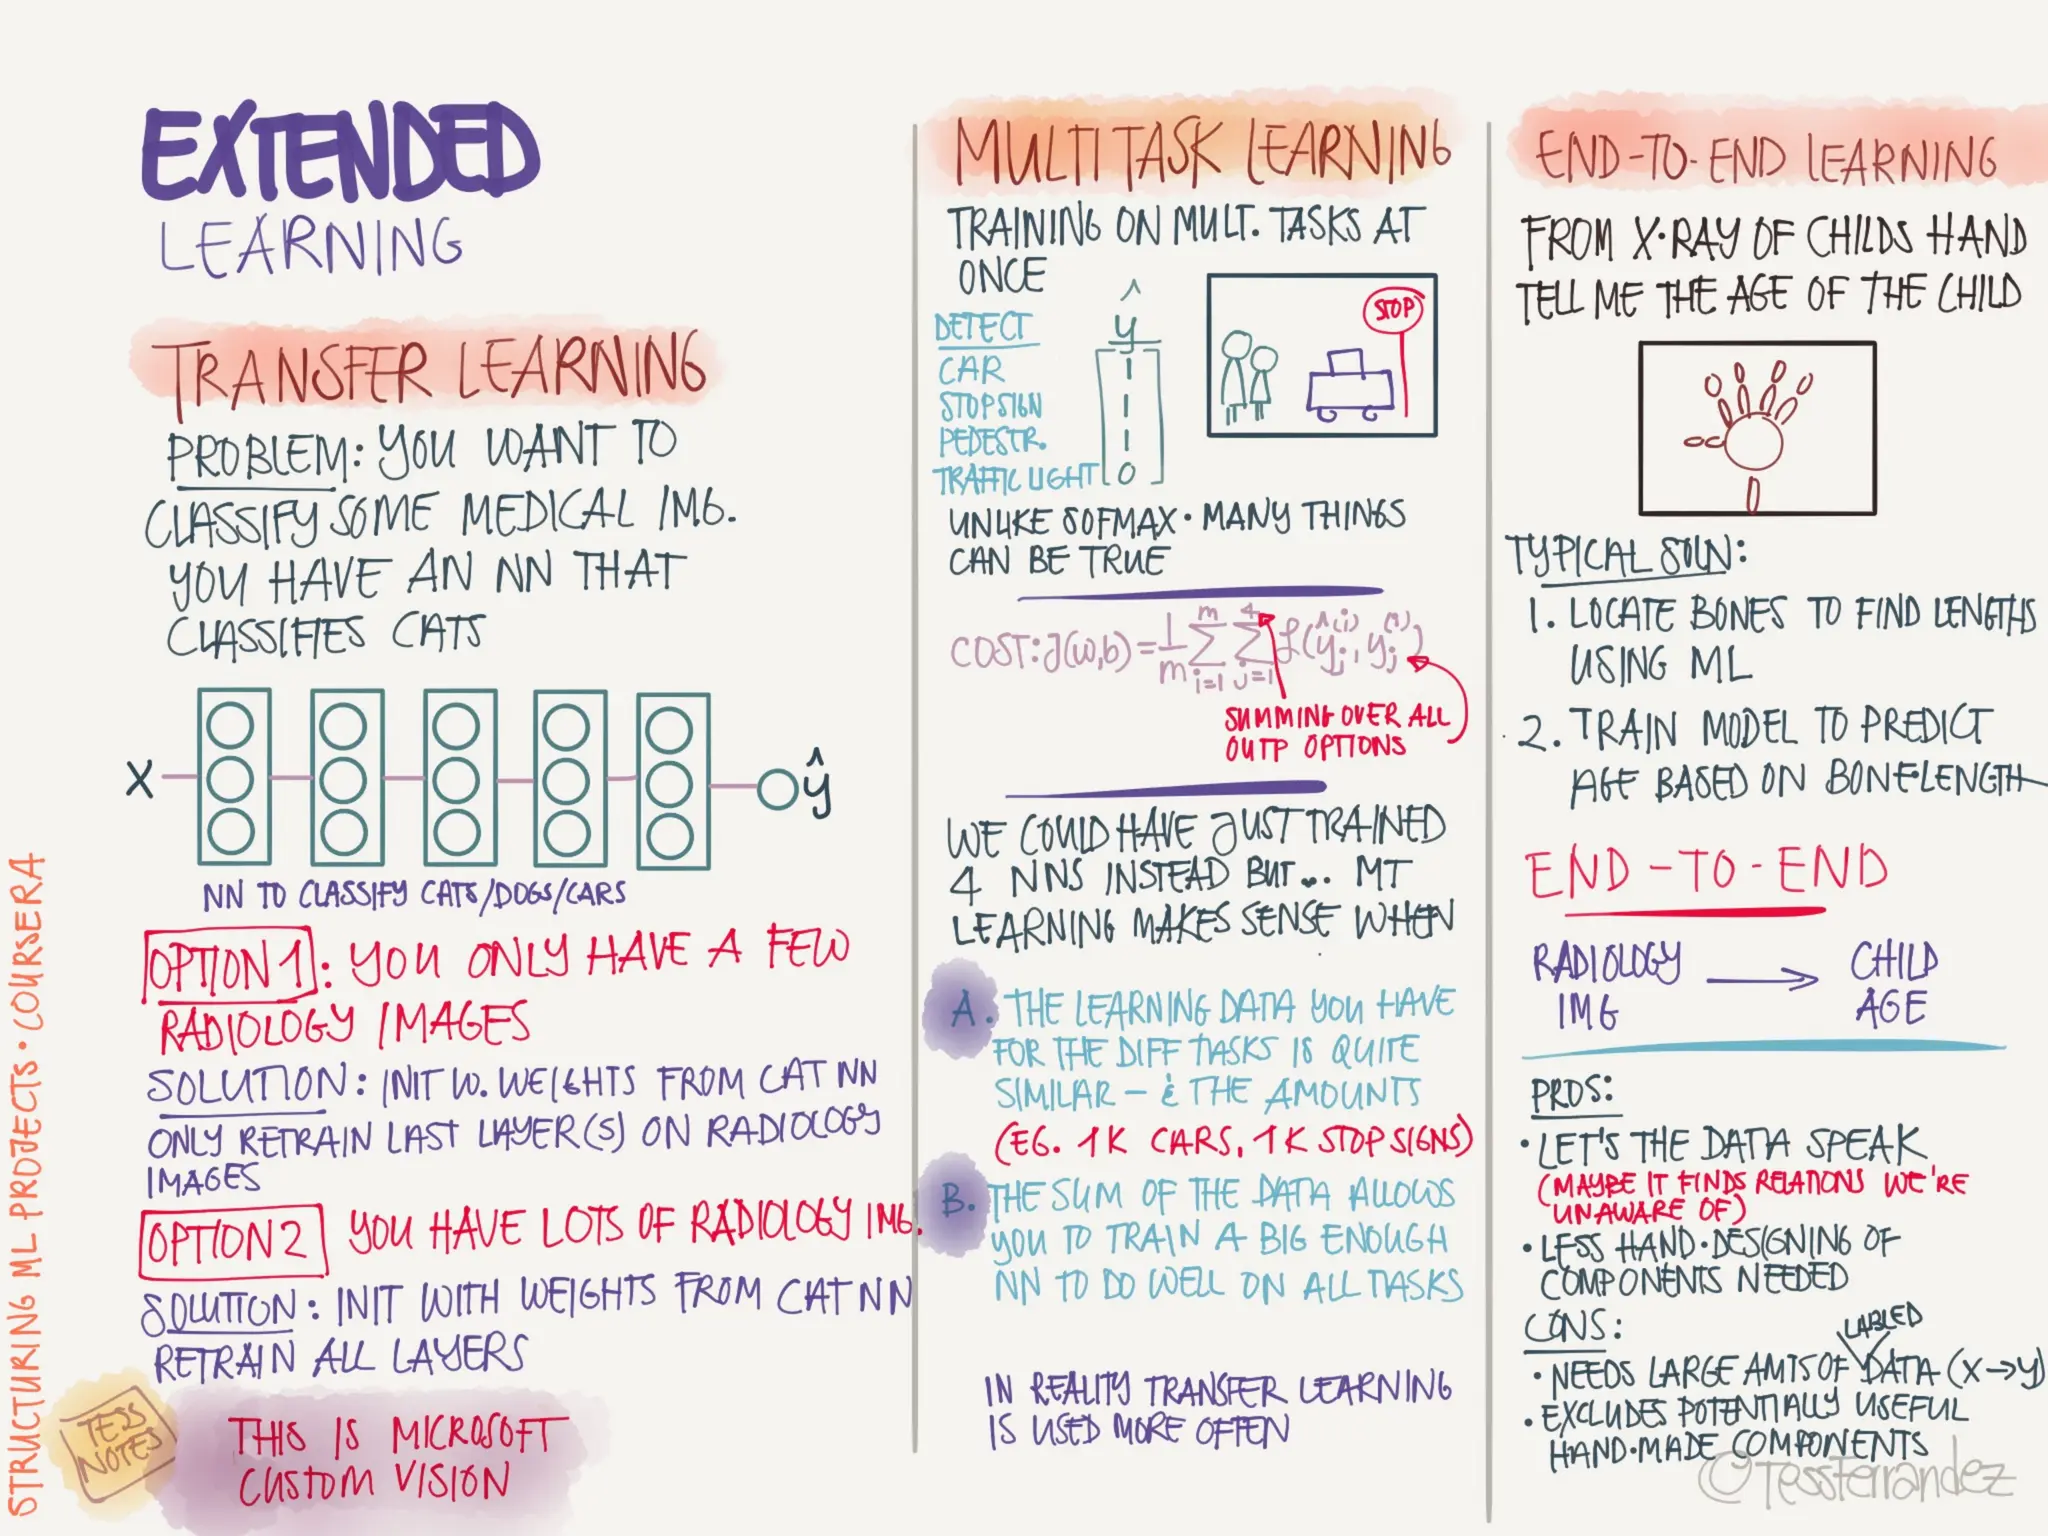 EXTENDED
LEARNING
TRANSFER LEARNING
PROBLEM: YOU WANT TO
CLASSIFY SOME MEDICAL IMG.
YOU HAVE AN NN THAT
CLASSIFIES CATS
X
ŷ
NN TO CLASSIFY CATS/DOGS/CARS
OPTION 1: YOU ONLY HAVE A FEW
RADIOLOGY IMAGES
SOLUTION: INIT W. WEIGHTS FROM CAT NN
ONLY RETRAIN LAST LAYER(S) ON RADIOLOGY
IMAGES
OPTION 2 YOU HAVE LOTS OF RADIOLOGY IMG.
SOLUTION: INIT WITH WEIGHTS FROM CAT NN
RETRAIN ALL LAYERS
THIS IS MICROSOFT
CUSTOM VISION
TESS
NOTES
STRUCTURING ML PROJECTS · COURSERA
MULTI TASK LEARNING
TRAINING ON MULT. TASKS AT
ONCE
DETECT ŷ
CAR 1
STOPSIGN 1
PEDESTR. 1
TRAFFIC LIGHT 0
STOP
UNLIKE SOFMAX · MANY THINGS
CAN BE TRUE
COST: J(w,b) = 1/m Σ_{i=1}^{m} Σ_{j=1}^{4} ℒ(ŷ_j^{(i)}, y_j^{(i)})
SUMMING OVER ALL
OUTP OPTIONS
WE COULD HAVE JUST TRAINED
4 NNS INSTEAD BUT... MT
LEARNING MAKES SENSE WHEN
A. THE LEARNING DATA YOU HAVE
FOR THE DIFF TASKS IS QUITE
SIMILAR - & THE AMOUNTS
(EG. 1K CARS, 1K STOP SIGNS)
B. THE SUM OF THE DATA ALLOWS
YOU TO TRAIN A BIG ENOUGH
NN TO DO WELL ON ALL TASKS
IN REALITY TRANSFER LEARNING
IS USED MORE OFTEN
END-TO-END LEARNING
FROM X·RAY OF CHILDS HAND
TELL ME THE AGE OF THE CHILD
TYPICAL SOLN:
1. LOCATE BONES TO FIND LENGTHS
USING ML
2. TRAIN MODEL TO PREDICT
AGE BASED ON BONE-LENGTH
END-TO-END
RADIOLOGY → CHILD
IMG AGE
PROS:
· LET'S THE DATA SPEAK
(MAYBE IT FINDS RELATIONS WE'RE
UNAWARE OF)
· LESS HAND·DESIGNING OF
COMPONENTS NEEDED
CONS:
LABLED
· NEEDS LARGE AMTS OF DATA (X→Y)
· EXCLUDES POTENTIALLY USEFUL
HAND·MADE COMPONENTS
@TessFerrandez